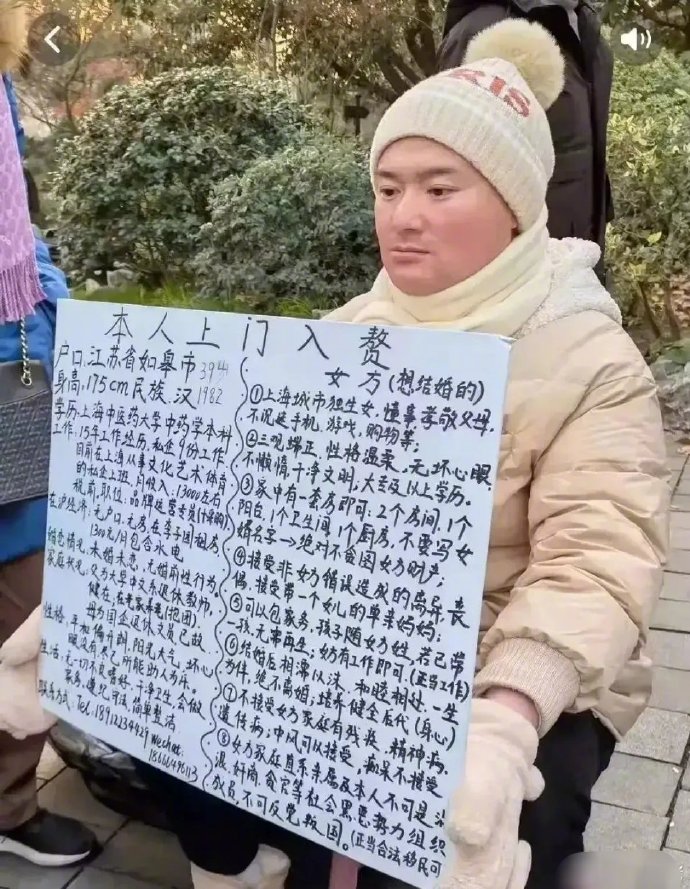 本人上门入赘
户口:江苏省如皋市 39岁
身高:175cm 民族:汉 1982
学历:上海中医药大学中药学本科
工作:15年工作经历,私企9份工作
目前在上海从事文化艺术体育
的私企上班,月收入:13000左右
税前,职位:品牌运营专员
在沪经济:无户口,无房,在李子园租房
1300元/月包含水电
婚恋情况:未婚未恋,无婚前性行为,
家庭状况:父为大专中文系退休教师,
健在,在老家养老(抱团)
母为国企退休文员已故
性格:平和偏开朗,阳光大气,坏心
眼没有,尽己所能助人为乐。
生活:无一切不良嗜好,干净卫生,会做
家务,遵纪守法,简单整洁
联系方式:Tel:18912234429 Wechat:
女方(想结婚的)
①上海城市独生女,懂事孝敬父母,
不沉迷手机,游戏,购物等;
②三观端正,性格温柔,无坏心眼,
不懒惰,干净文明,大专及以上学历。
③家中有一套房即可:2个房间,1个
阳台,1个卫生间,1个厨房,不要写女
婿名字→绝对不贪图女方财产;
④接受非女方错误造成的离异,丧
偶,接受带一个女儿的单亲妈妈;
⑤可以包家务,孩子随女方姓,若已带
一孩,无需再生;女方有工作即可(正当工作)
⑥结婚后相濡以沫,和睦相处,一生
为伴,绝不离婚,培养健全后代(身心)
⑦不接受女方家庭有残疾,精神病,
遗传病,中风可以接受,痴呆不接受
⑧女方家庭直系亲属及本人不可是法
浪,奸商,贪官等社会黑恶势力组织
成员,不可反党叛国。(正当合法移民可